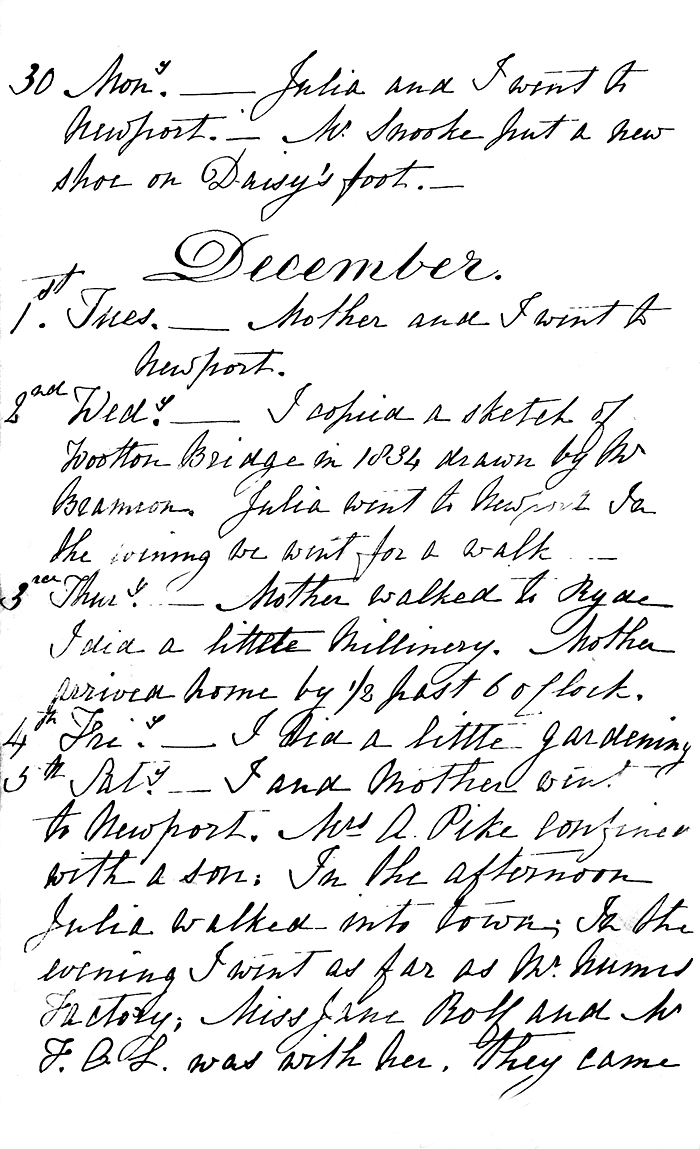 30 Mon.y — Julia and I went to
Newport. — Mr Snooke put a new
shoe on Daisy's foot. —
December.
1st. Tues. — Mother and I went to
Newport.
2nd Wed.y — I copied a sketch of
Wootton Bridge in 1834 drawn by Mr
Brannon. Julia went to Newport In
the evening we went for a walk —
3rd Thur.y — Mother walked to Ryde
I did a little Millinery. Mother
arrived home by 1/2 past 6 o'Clock.
4th Fri.y — I did a little gardening
5th Sat.y — I and Mother went
to Newport. Mrs A. Pike confined
with a son: In the afternoon
Julia walked into town; In the
evening I went as far as Mr.
Factory; Miss Jane Rolf and Mr
F. L. was with her. They came